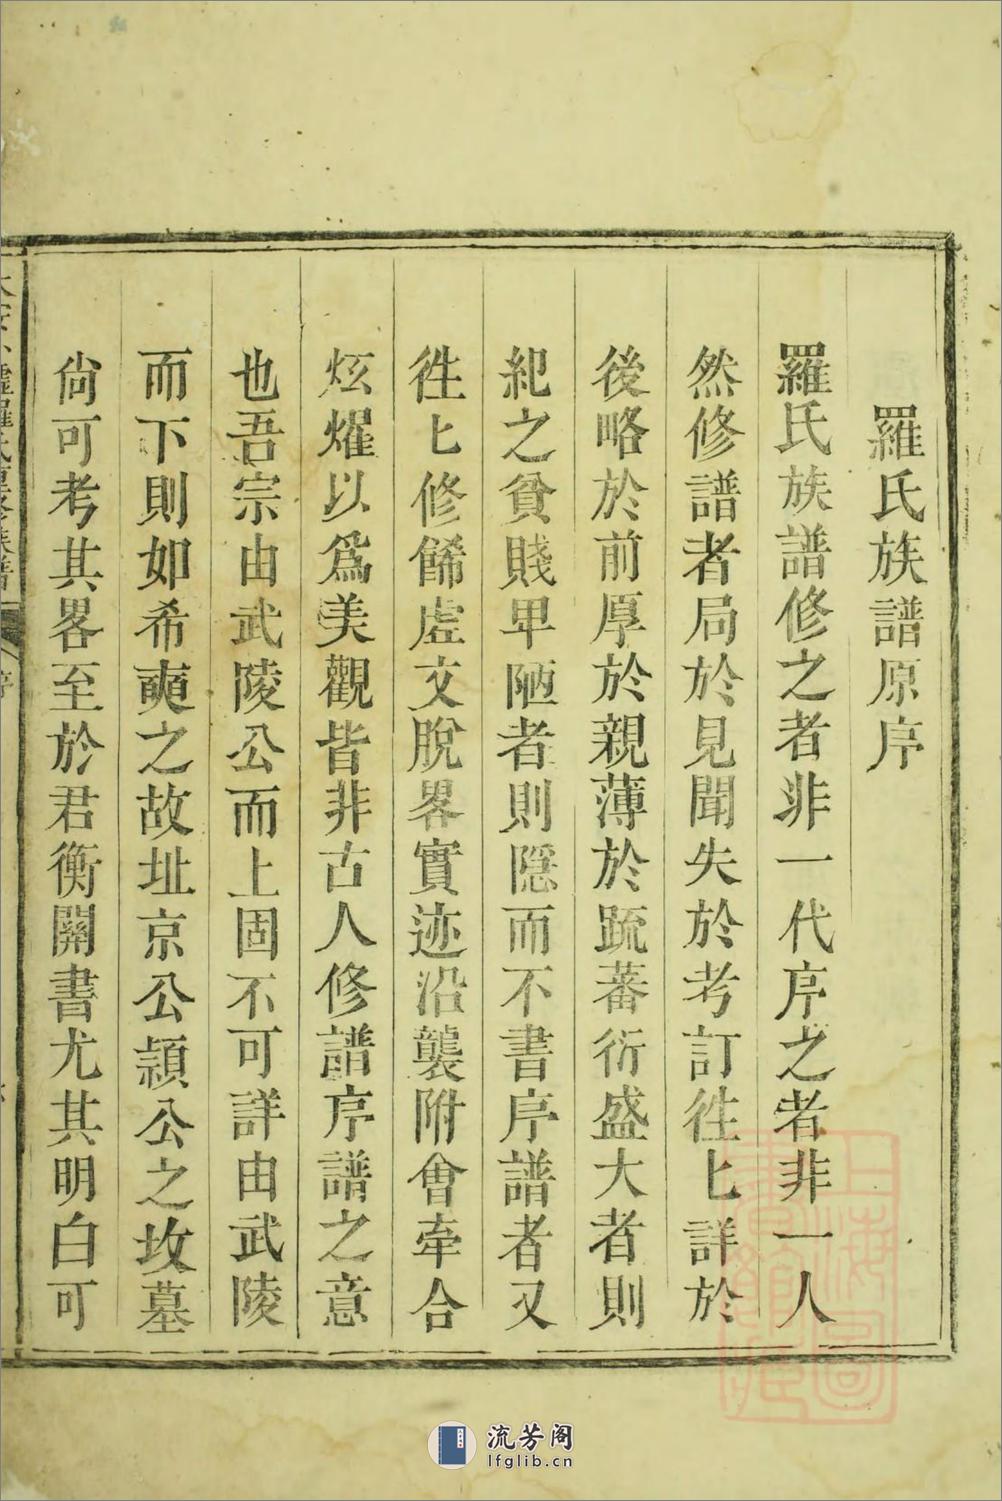 羅氏族譜原序
羅氏族譜修之者非一代序之者非一人
然修譜者局於見聞失於考訂徃匕詳於
後略於前厚於親薄於疏蕃衍盛大者則
紀之貧賤卑陋者則隱而不書序譜者又
徃匕修餙虛文脫畧實迹沿襲附會牽合
炫燿以爲美觀皆非古人修譜序譜之意
也吾宗由武陵公而上固不可詳由武陵
而下則如希奭之故址京公頴公之坟墓
尙可考其畧至於君衡關書尤其明白可
序
上海圖書館藏
流芳阁
lfglib.cn